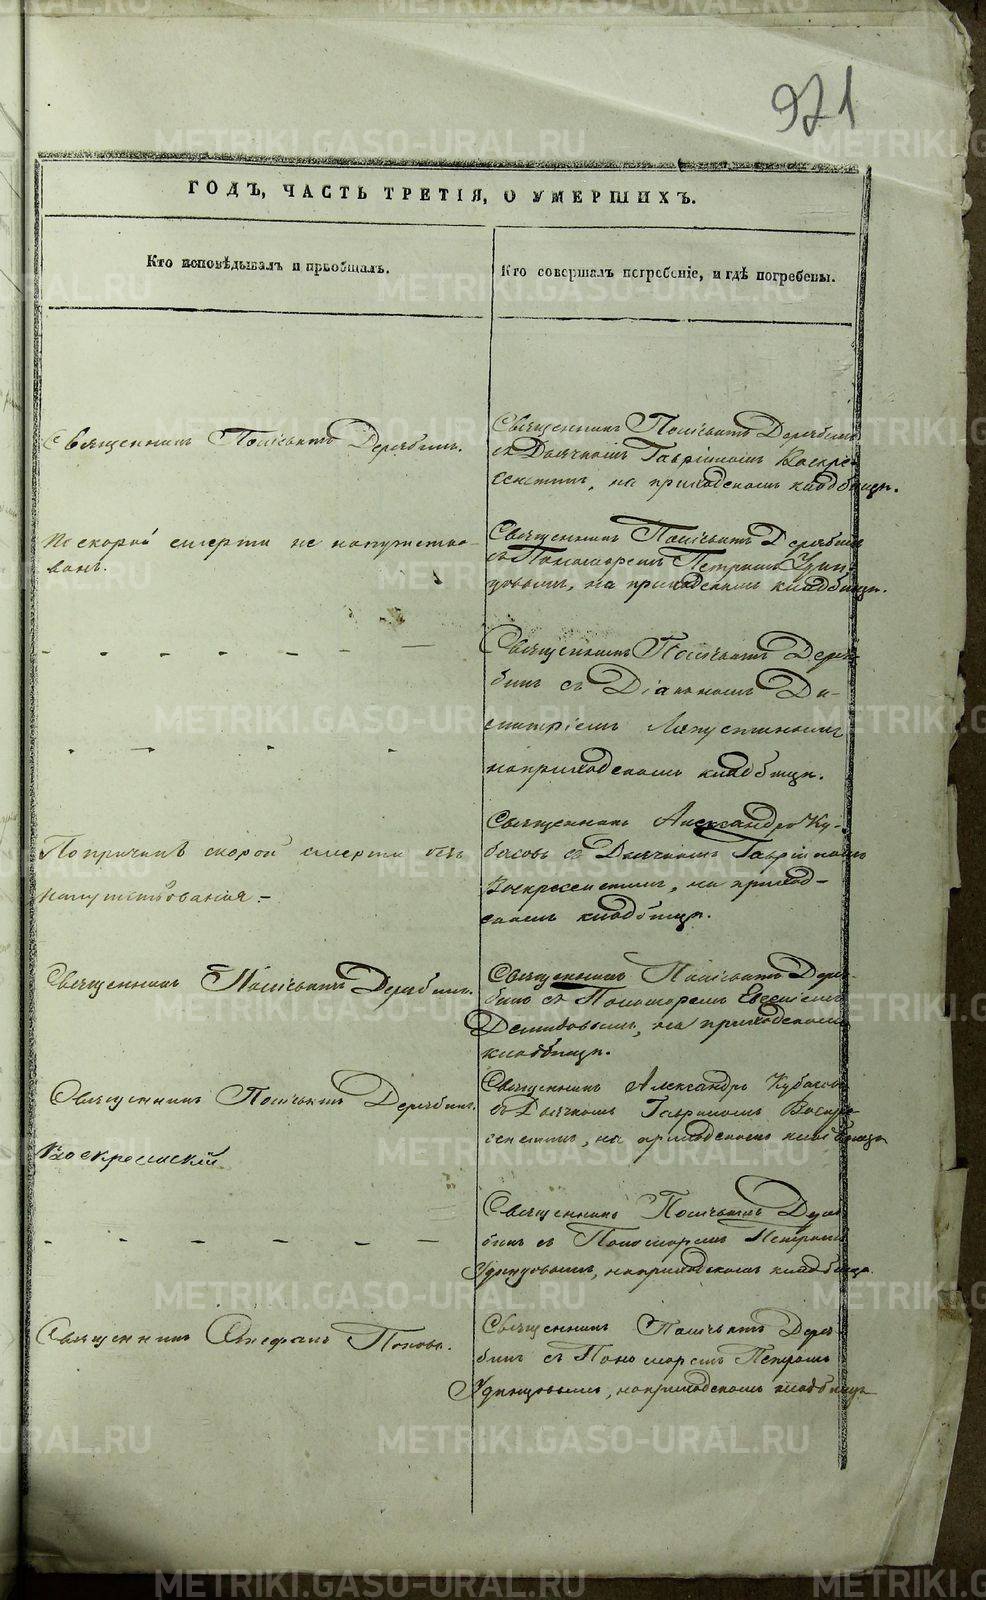 971
ГОДЪ, ЧАСТЬ ТРЕТІЯ, О УМЕРШИХЪ.
Кто исповѣдывалъ и пріобщалъ.
Кто совершалъ погребеніе, и гдѣ погребены.
Священникъ Поліевктъ Дерябинъ.
Священникъ Поліевктъ Дерябинъ
съ Дьячкомъ Гавріиломъ Воскре-
сенскимъ, на приходскомъ кладбищѣ.
По скорой смерти не напутство-
ванъ.
Священникъ Поліевктъ Дерябинъ
съ Пономоремъ Петромъ Удин-
цовымъ, на приходскомъ кладбищѣ.
Священникъ Поліевктъ Деря-
бинъ съ Діакономъ Ди-
митріемъ Ляпустинымъ
на приходскомъ кладбищѣ.
По причинѣ скорой смерти безъ
напутствования.-
Священникъ Александръ Ку-
басовъ съ Дьячкомъ Гавріиломъ
Воскресенскимъ, на приход-
скомъ кладбищѣ.
Священникъ Поліевктъ Дерябинъ.
Священникъ Поліевктъ Деря-
бинъ съ Пономоремъ Евгеніемъ
Демидовымъ, на приходскомъ
кладбищѣ.
Священникъ Поліевктъ Дерябинъ.
Воскресенскій
Священникъ Александръ Кубасовъ
съ Дьячкомъ Гавріиломъ Воскре
сенскимъ, на приходскомъ кладбищѣ
Священникъ Поліевктъ Деря
бинъ съ Пономоремъ Петромъ
Удинцовымъ, на приходскомъ кладбищѣ.
Священникъ Стефанъ Поповъ.
Священникъ Поліевктъ Деря-
бинъ съ Пономоремъ Петромъ
Удинцовымъ, на приходскомъ кладбищѣ
METRIKI.GASO-URAL.RU